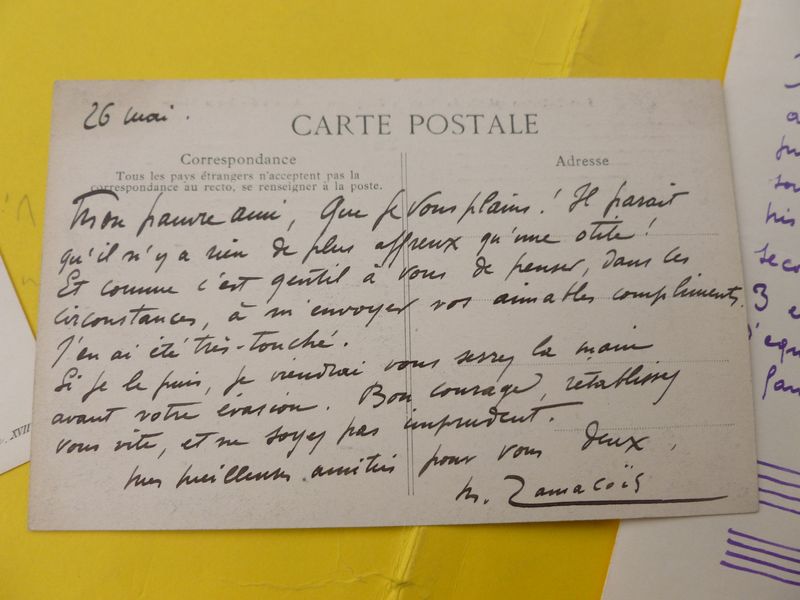 26 mai.
CARTE POSTALE
Correspondance
Tous les pays étrangers n'acceptent pas la
correspondance au recto, se renseigner à la poste.
Adresse
Mon pauvre ami, Que je vous plains! Il parait
qu'il n'y a rien de plus affreux qu'une otite!
Et comme c'est gentil à vous de penser, dans ces
circonstances, à m'envoyer vos aimables compliments.
J'en ai été très-touché.
Si je le puis, je viendrai vous serrer la main
avant votre évasion. Bon courage, rétablissez
vous vite, et ne soyez pas imprudent.
Mes meilleures amitiés pour vous deux,
M. Zamacoïs
XVII
3